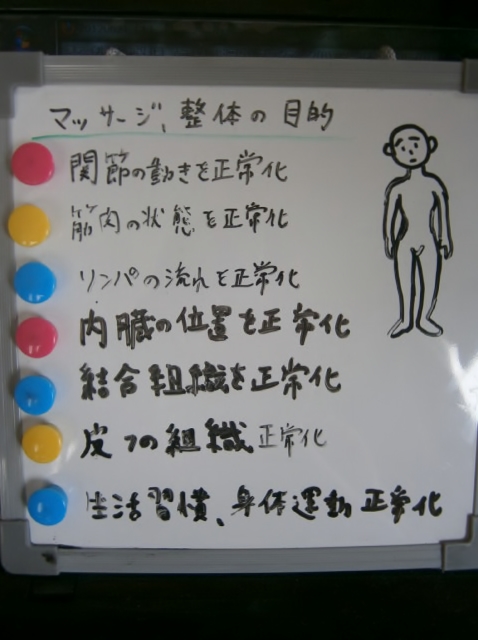 マッサージ、整体の目的
関節の動きを正常化
筋肉の状態を正常化
リンパの流れを正常化
内臓の位置を正常化
結合組織を正常化
皮フの組織正常化
生活習慣、身体運動正常化